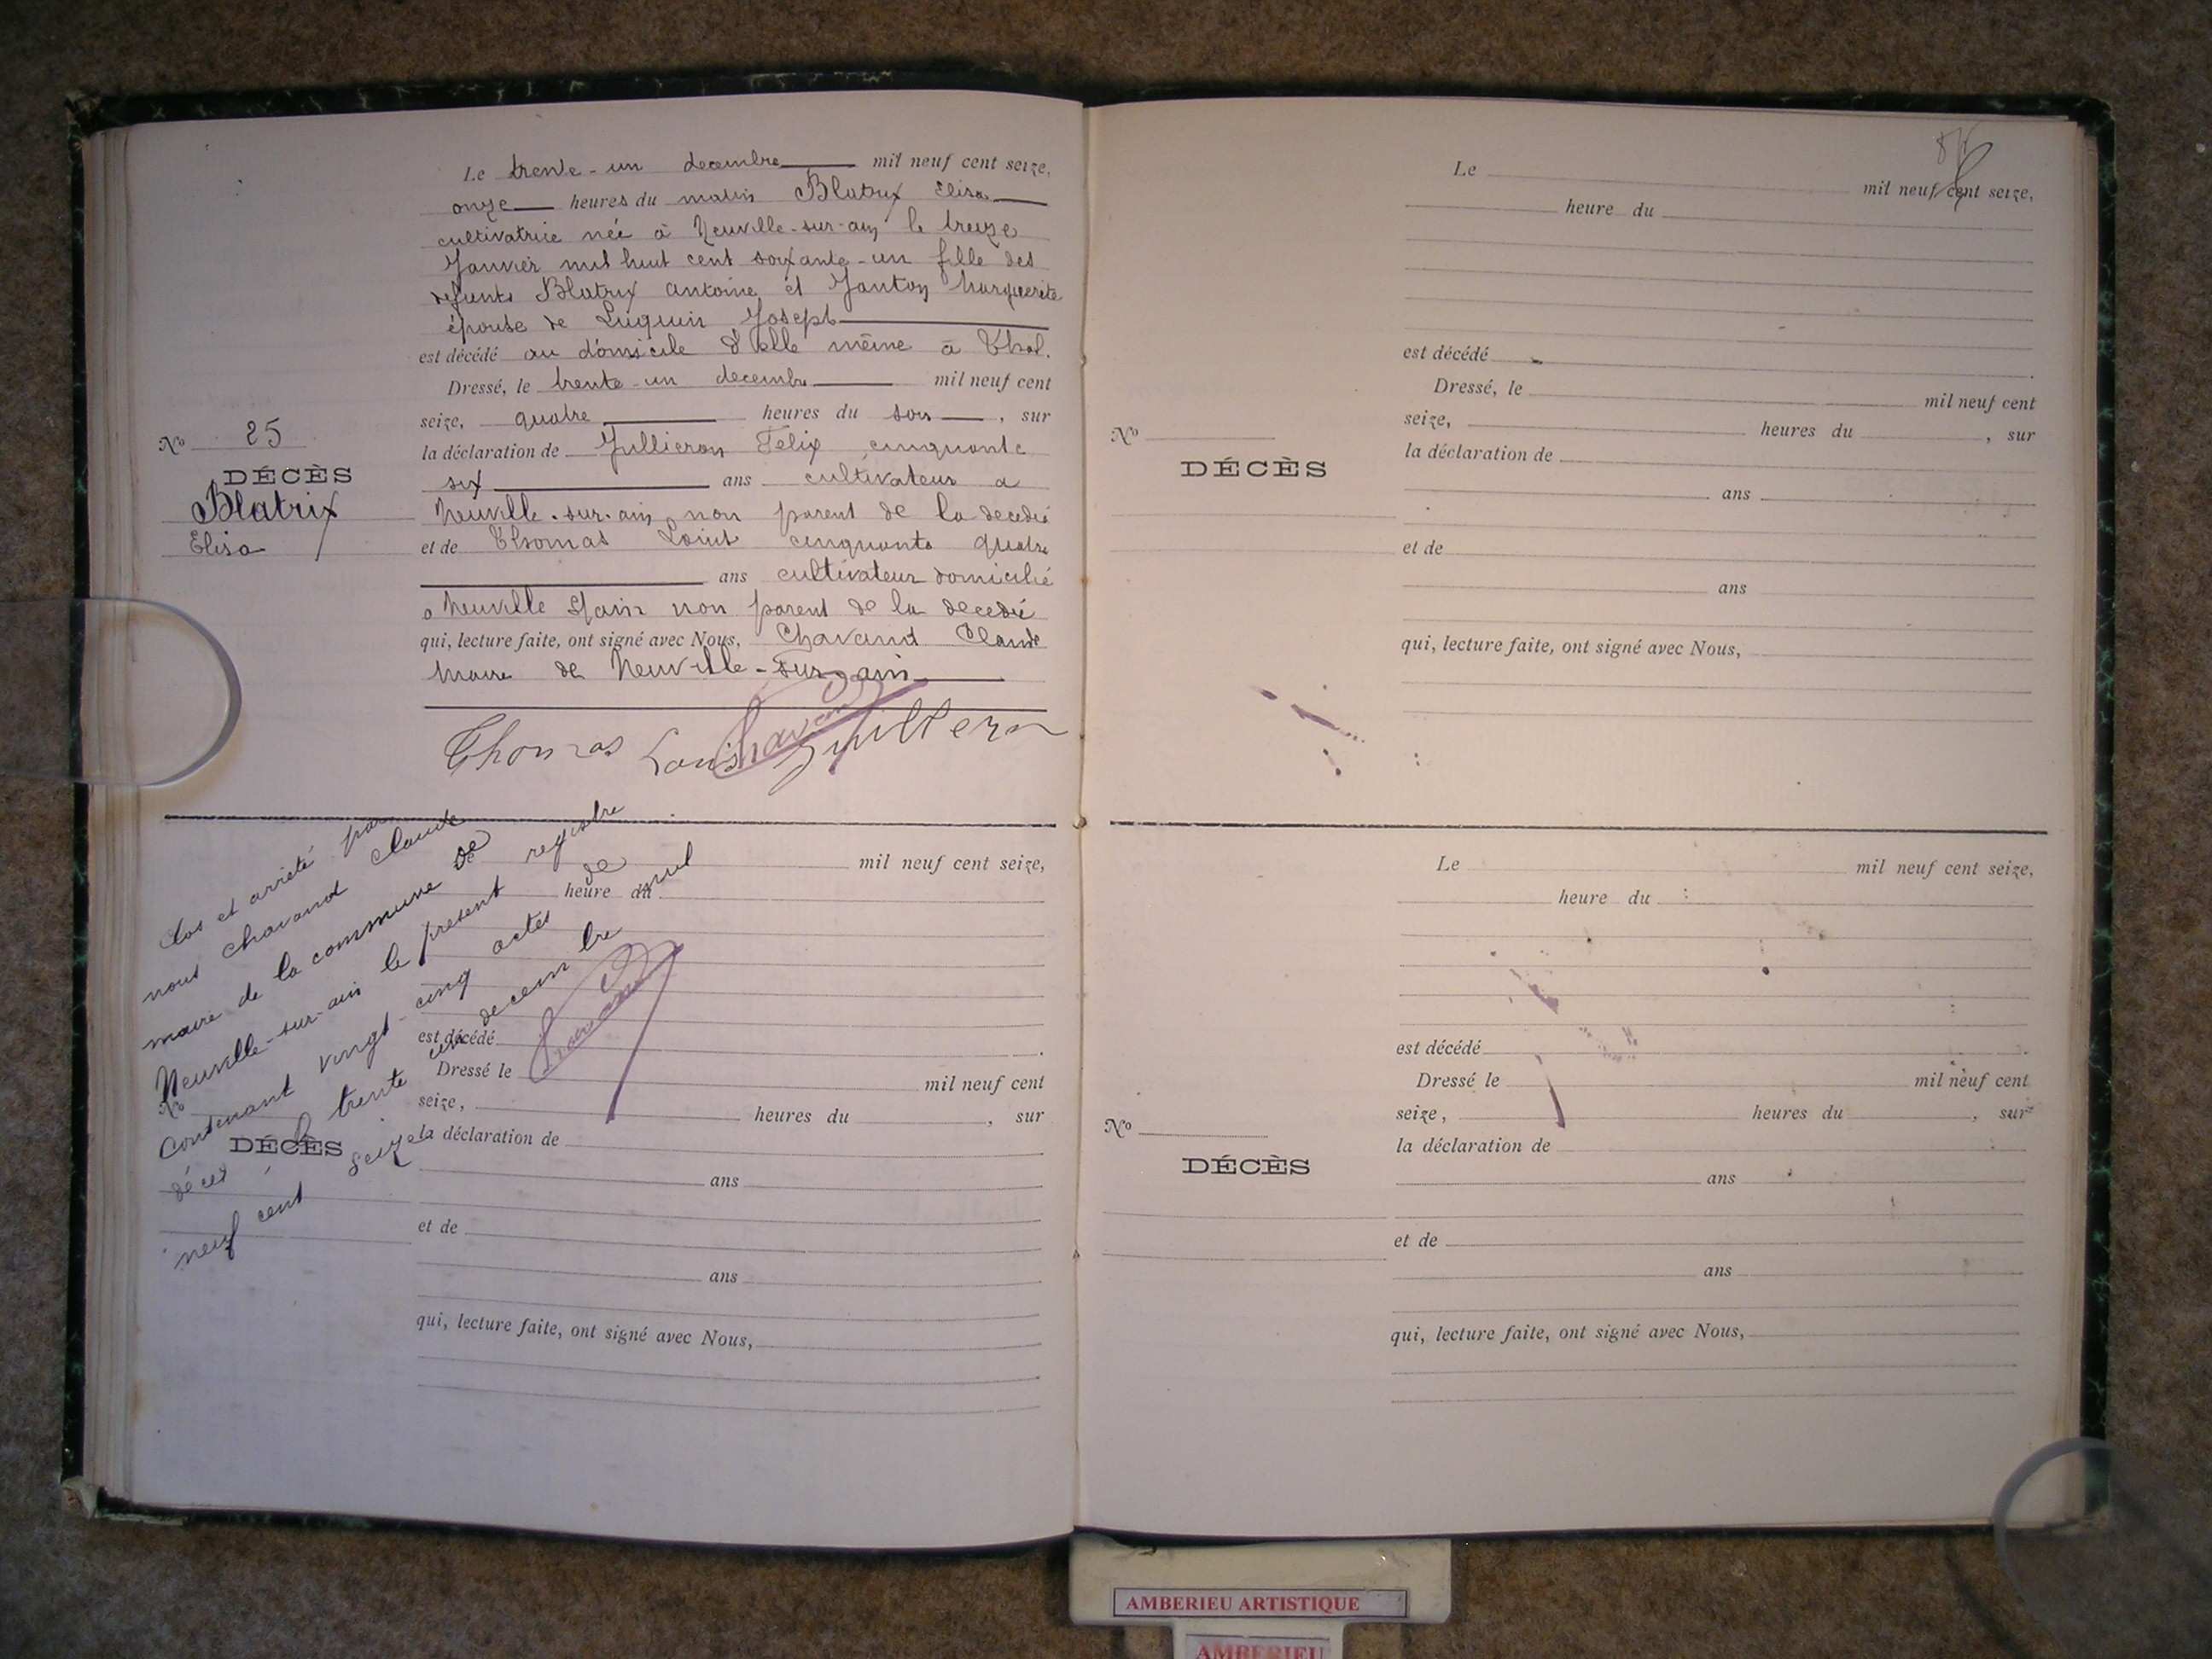 Le trente-un decembre mil neuf cent seize,
onze heures du matin Blatrix Elisa
cultivatrice née à Neuville-sur-ain le treize
Janvier mil huit cent soixante-un fille des
defunts Blatrix antoine et Janton Marguerite
épouse de Luquin Joseph
est décédé au domicile d'elle même à Thol.
Dressé, le trente-un decembre mil neuf cent
seize, quatre heures du soir, sur
la déclaration de Jullieron Felix cinquante
six ans cultivateur a
Neuville-sur-ain non parent de la decedée
et de Thomas Louis cinquante quatre
ans cultivateur domicilié
a Neuville s/ain non parent de la decedée
qui, lecture faite, ont signé avec Nous, Chavand Claude
Maire de Neuville-sur-ain
Thomas Louis Chavand
No 25
DÉCÈS
Blatrix
Elisa
Clos et arrêté par
nous chavand claude
maire de la commune de
Neuville-sur-ain le present registre
Contenant vingt-cinq actes de
décès le trente un decembre mil
neuf cent seize
Chavand
mil neuf cent seize,
heure du
est décédé
Dressé le mil neuf cent
seize, heures du , sur
la déclaration de
ans
et de
ans
qui, lecture faite, ont signé avec Nous,
No
DÉCÈS
Le mil neuf cent seize,
heure du
est décédé
Dressé, le mil neuf cent
seize, heures du , sur
la déclaration de
ans
et de
ans
qui, lecture faite, ont signé avec Nous,
No
DÉCÈS
Le mil neuf cent seize,
heure du
est décédé
Dressé le mil neuf cent
seize, heures du , sur
la déclaration de
ans
et de
ans
qui, lecture faite, ont signé avec Nous,
No
DÉCÈS
AMBERIEU ARTISTIQUE
AMBERIEU